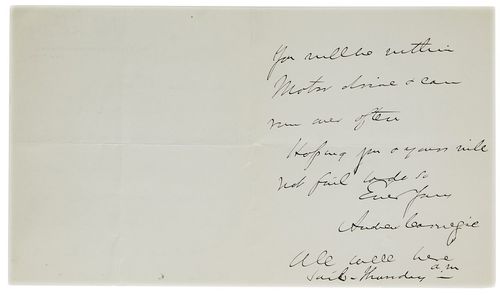 You will be within
Motor drive & can
run over often
Hoping you & yours will
not fail to do so
Ever Yours
Andrew Carnegie
All well here
Sail - Thursday a.m